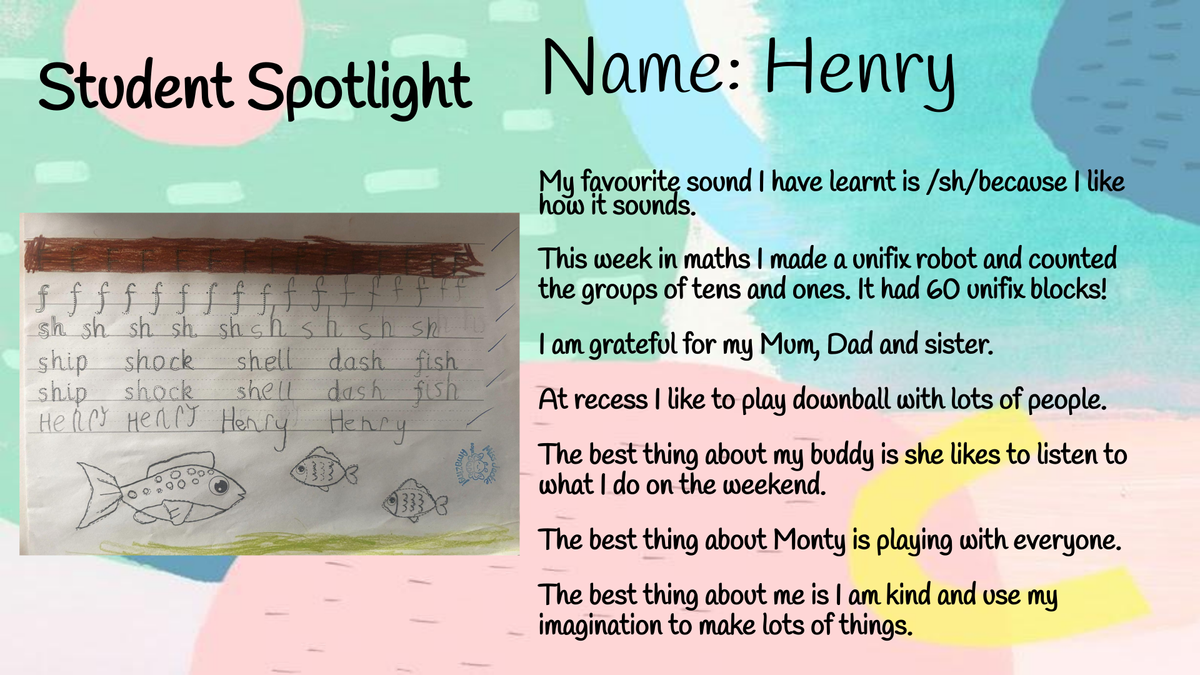 Student Spotlight
Name: Henry
f f f f f f f f f f f f f f f f
sh sh sh sh sh sh sh sh sh
ship shock shell dash fish
ship shock shell dash fish
Henry Henry Henry Henry
My favourite sound I have learnt is /sh/because I like
how it sounds.
This week in maths I made a unifix robot and counted
the groups of tens and ones. It had 60 unifix blocks!
I am grateful for my Mum, Dad and sister.
At recess I like to play downball with lots of people.
The best thing about my buddy is she likes to listen to
what I do on the weekend.
The best thing about Monty is playing with everyone.
The best thing about me is I am kind and use my
imagination to make lots of things.